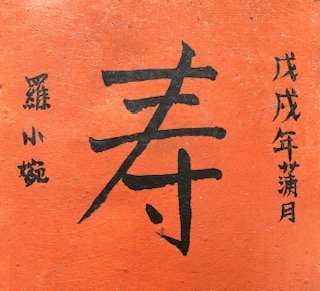 戊戌年蒲月
寿
羅小婉